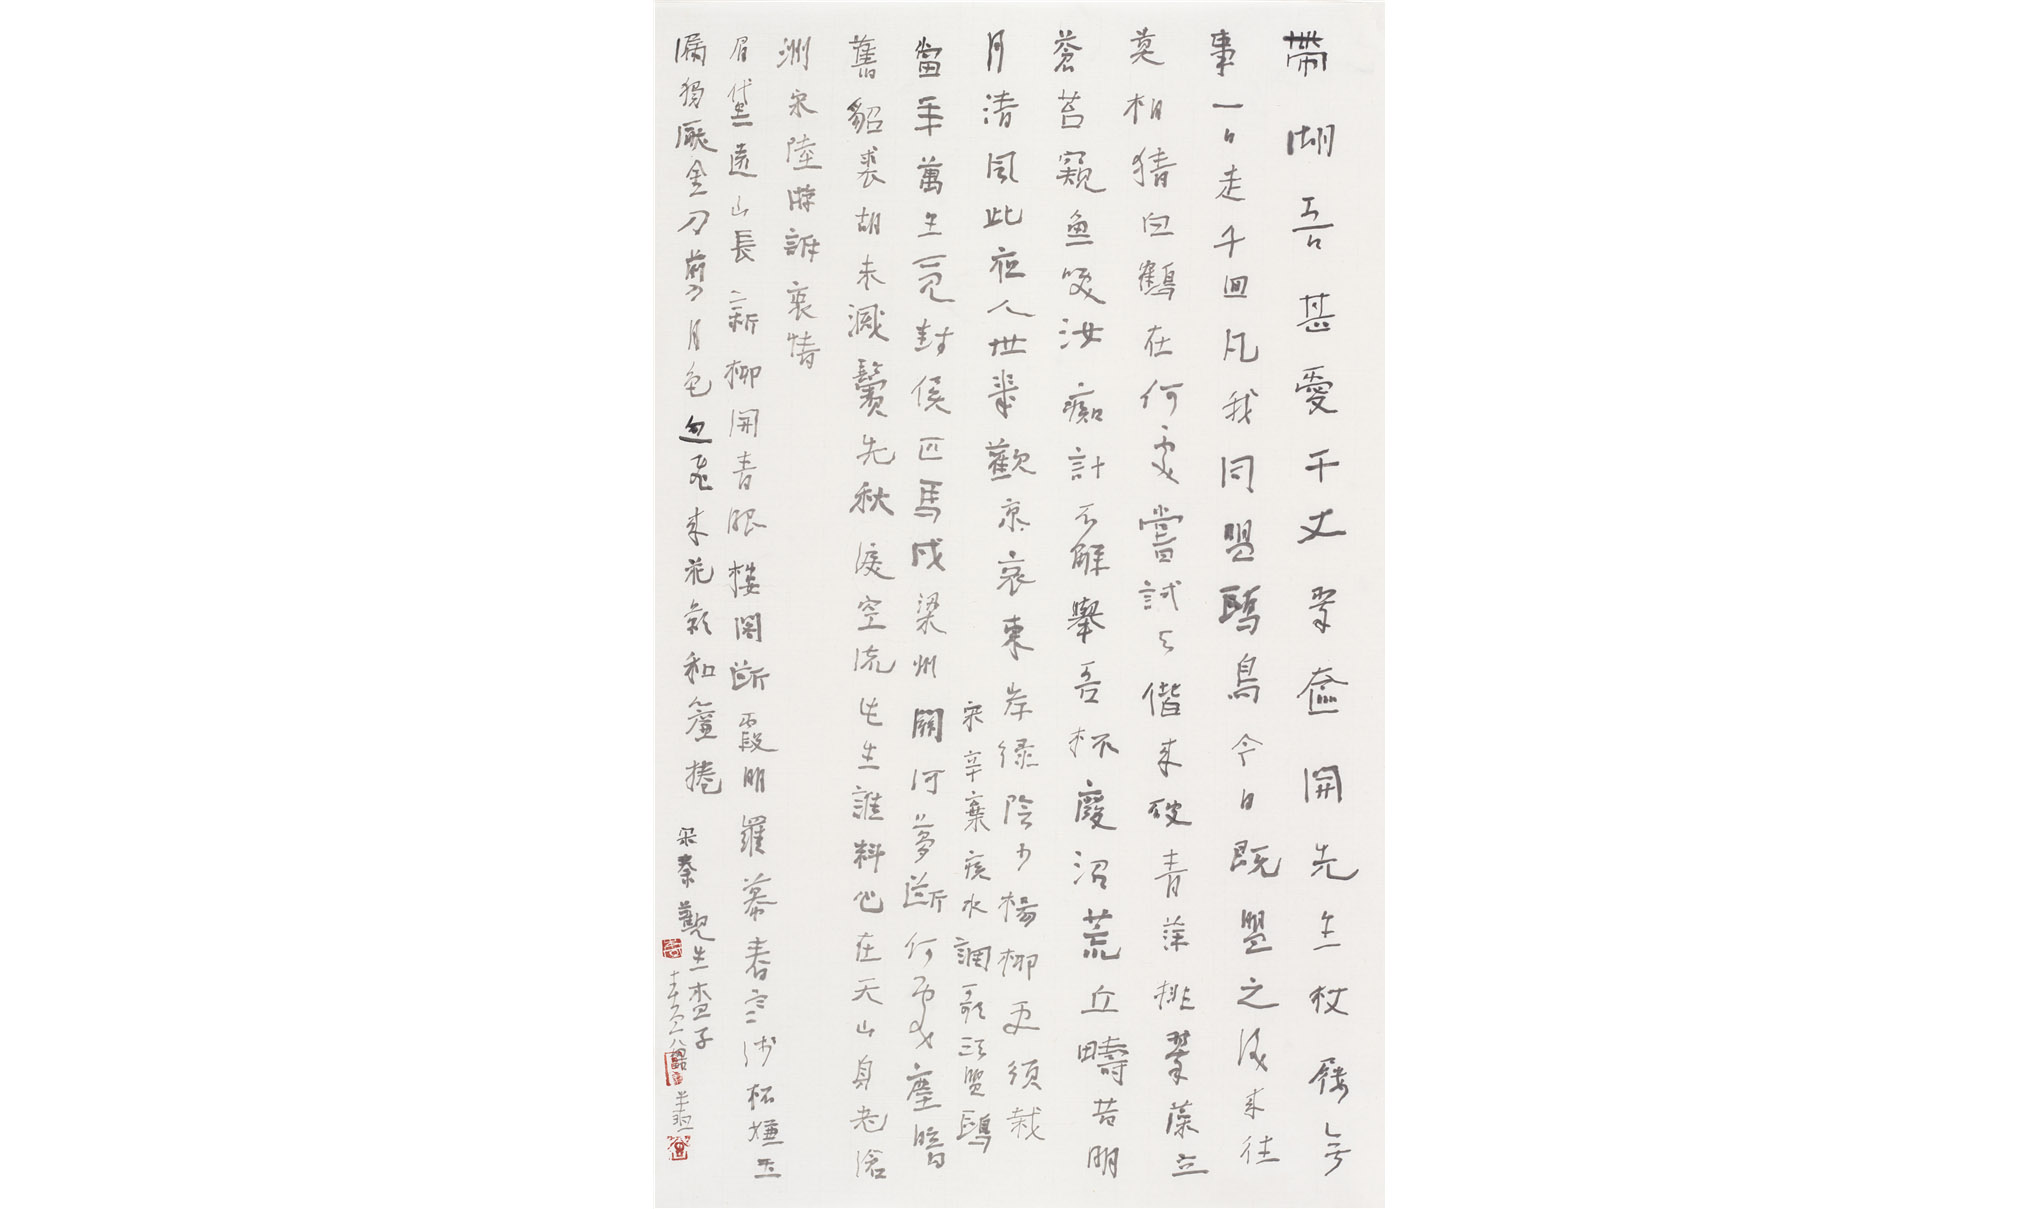 帶湖吾甚愛千丈翠奩開先生杖屨無
事一日走千回凡我同盟鷗鳥今日既盟之後來往
莫相猜白鶴在何處嘗試與偕來破青萍排翠藻立
蒼苔窺魚笑汝痴計不解舉吾杯廢沼荒丘疇昔明
月清風此夜人世幾歡哀東岸綠陰少楊柳更須栽
宋辛棄疾水調歌頭盟鷗
當年萬里覓封侯匹馬戍梁州關河夢斷何處塵暗
舊貂裘胡未滅鬢先秋淚空流此生誰料心在天山身老滄
洲宋陸游訴衷情
眉黛遠山長新柳開青眼樓閣斷霞明羅幕春寒淺杯嫌玉
漏燭厭金刀剪月色忽飛來花影和簾捲宋秦觀生查子